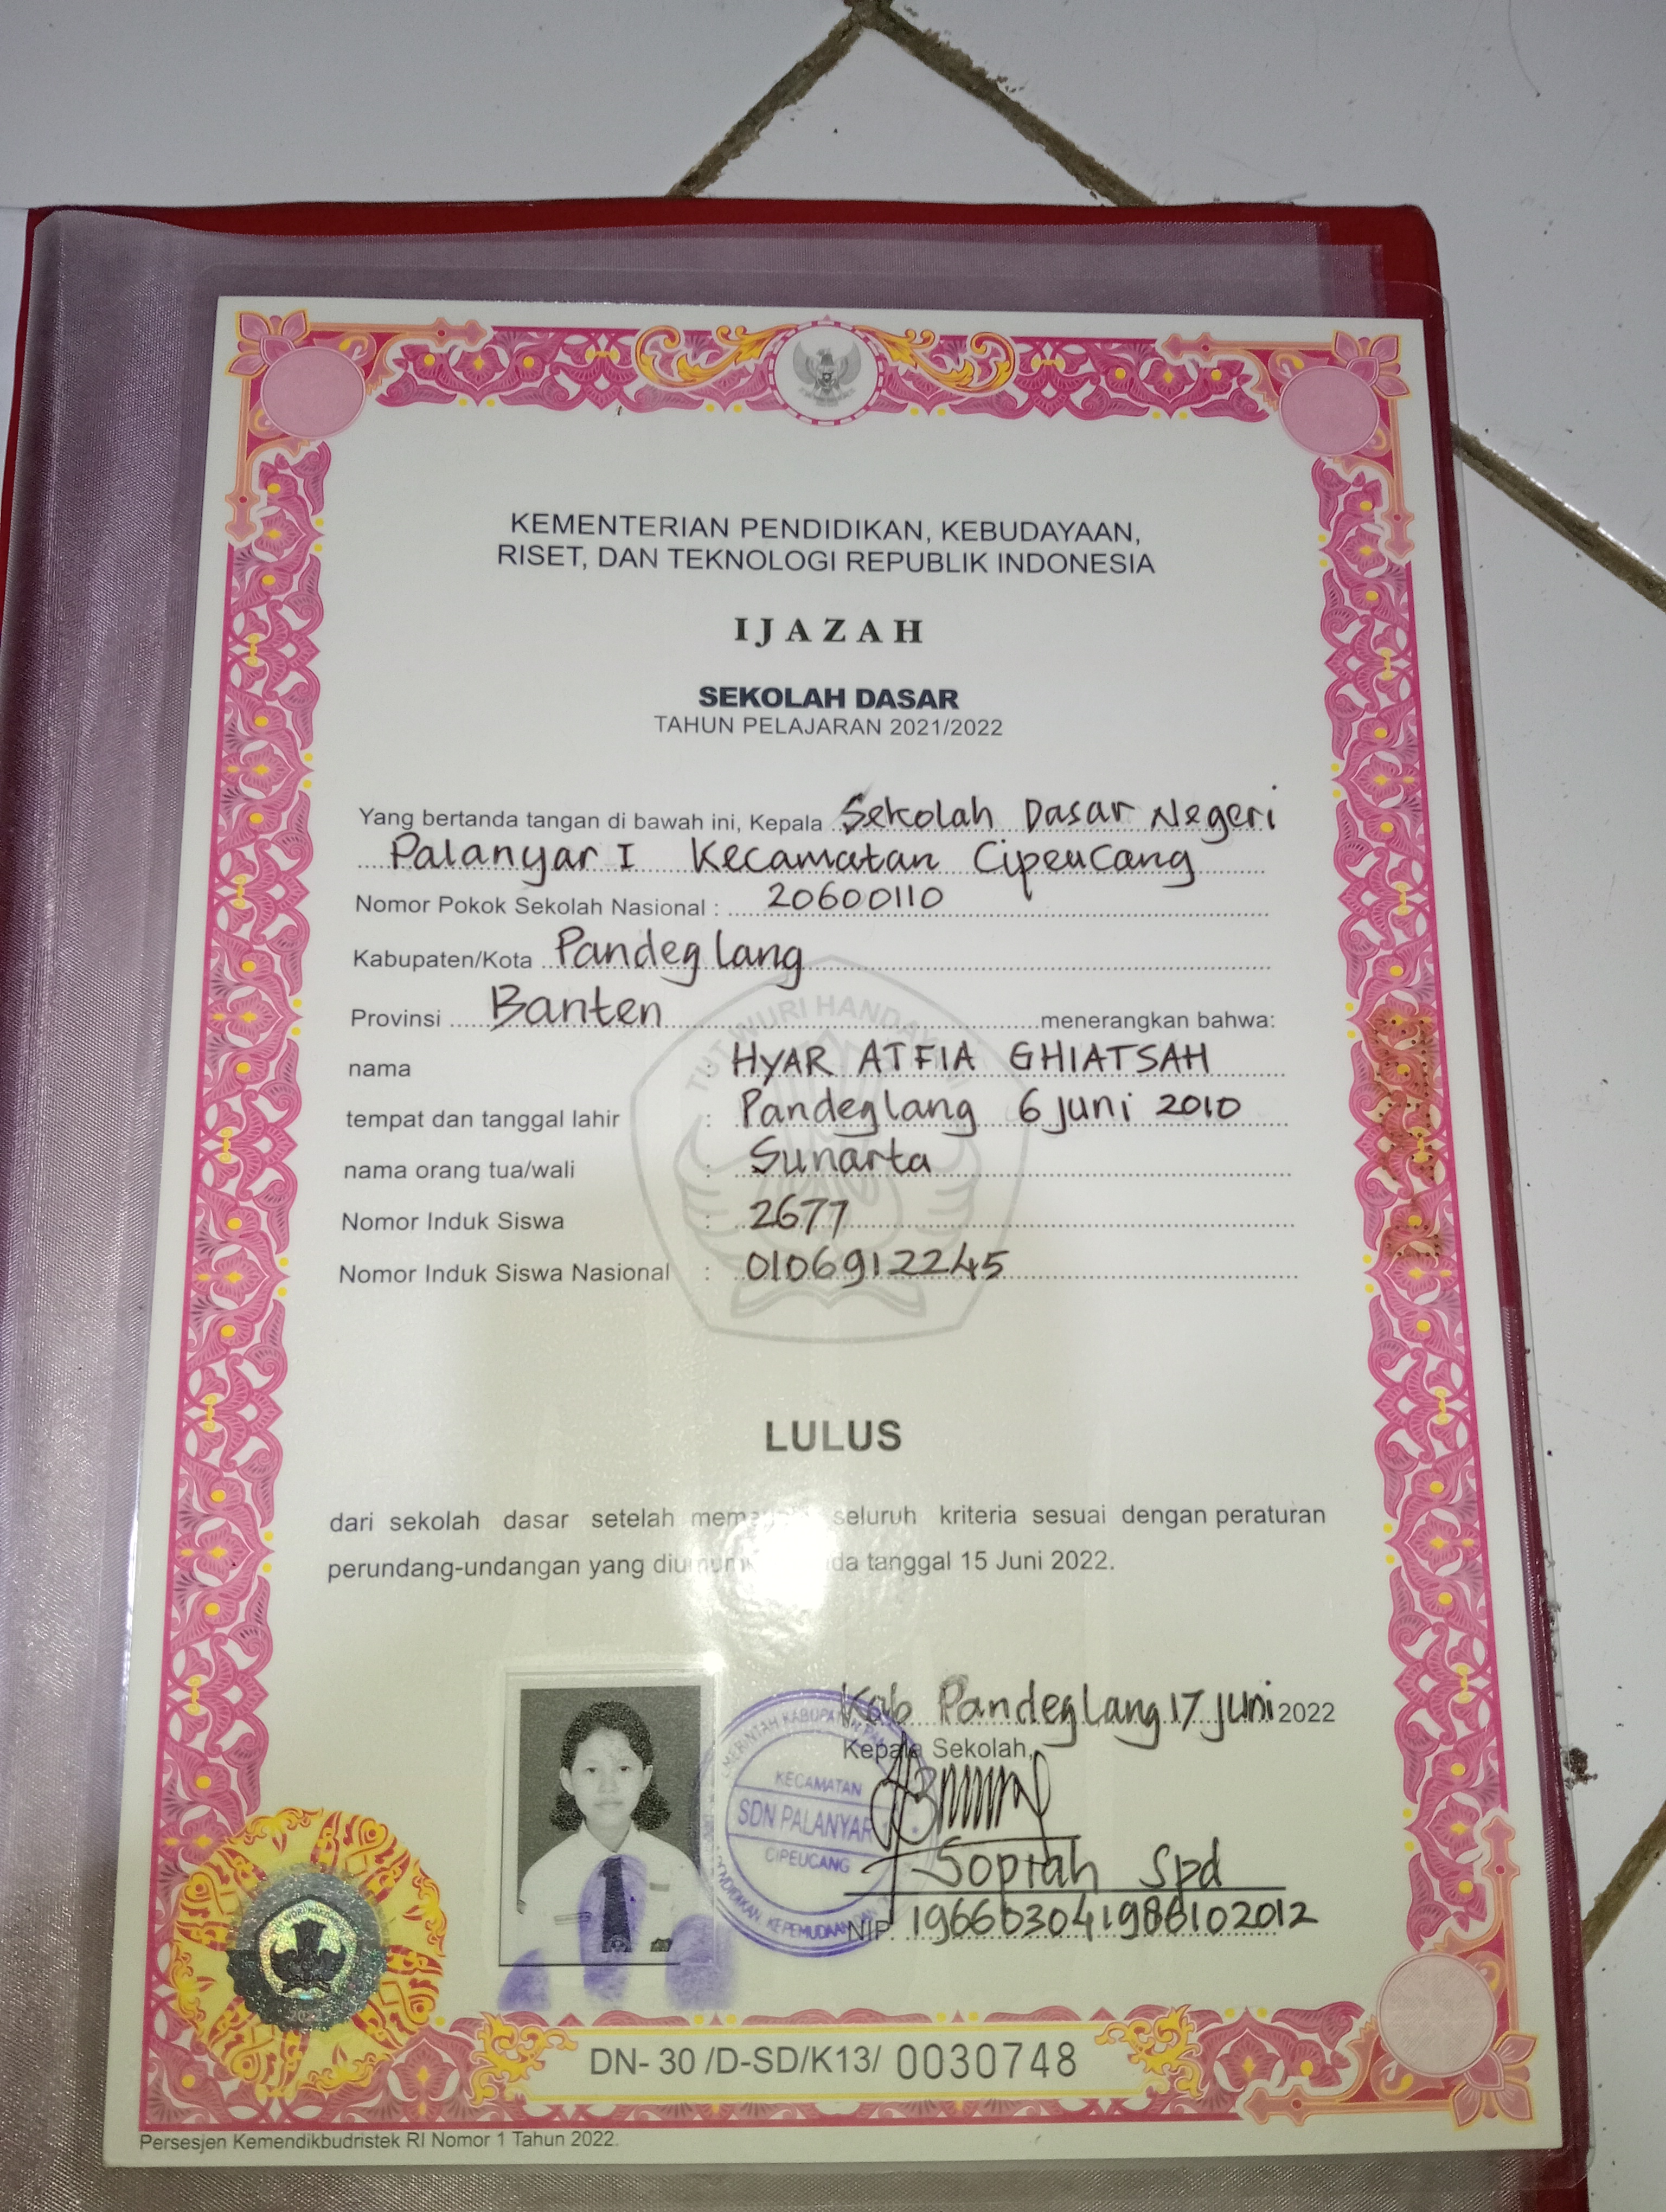 KEMENTERIAN PENDIDIKAN, KEBUDAYAAN,
RISET, DAN TEKNOLOGI REPUBLIK INDONESIA
IJAZAH
SEKOLAH DASAR
TAHUN PELAJARAN 2021/2022
Yang bertanda tangan di bawah ini, Kepala Sekolah Dasar Negeri
Palanyar I Kecamatan Cipeucang
Nomor Pokok Sekolah Nasional : 20600110
Kabupaten/Kota Pandeglang
Provinsi Banten menerangkan bahwa:
nama : HYAR ATFIA GHIATSAH
tempat dan tanggal lahir : Pandeglang 6 juni 2010
nama orang tua/wali : Sunarta
Nomor Induk Siswa : 2677
Nomor Induk Siswa Nasional : 0106912245
TUT WURI HANDAYANI
LULUS
dari sekolah dasar setelah seluruh kriteria sesuai dengan peraturan
perundang-undangan yang tanggal 15 Juni 2022.
Kab Pandeglang 17 juni 2022
Kepala Sekolah,
KECAMATAN
SDN PALANYAR
CIPEUCANG
Sopiah Spd
NIP. 196603041986102012
DN- 30 /D-SD/K13/ 0030748
Persesjen Kemendikbudristek RI Nomor 1 Tahun 2022.